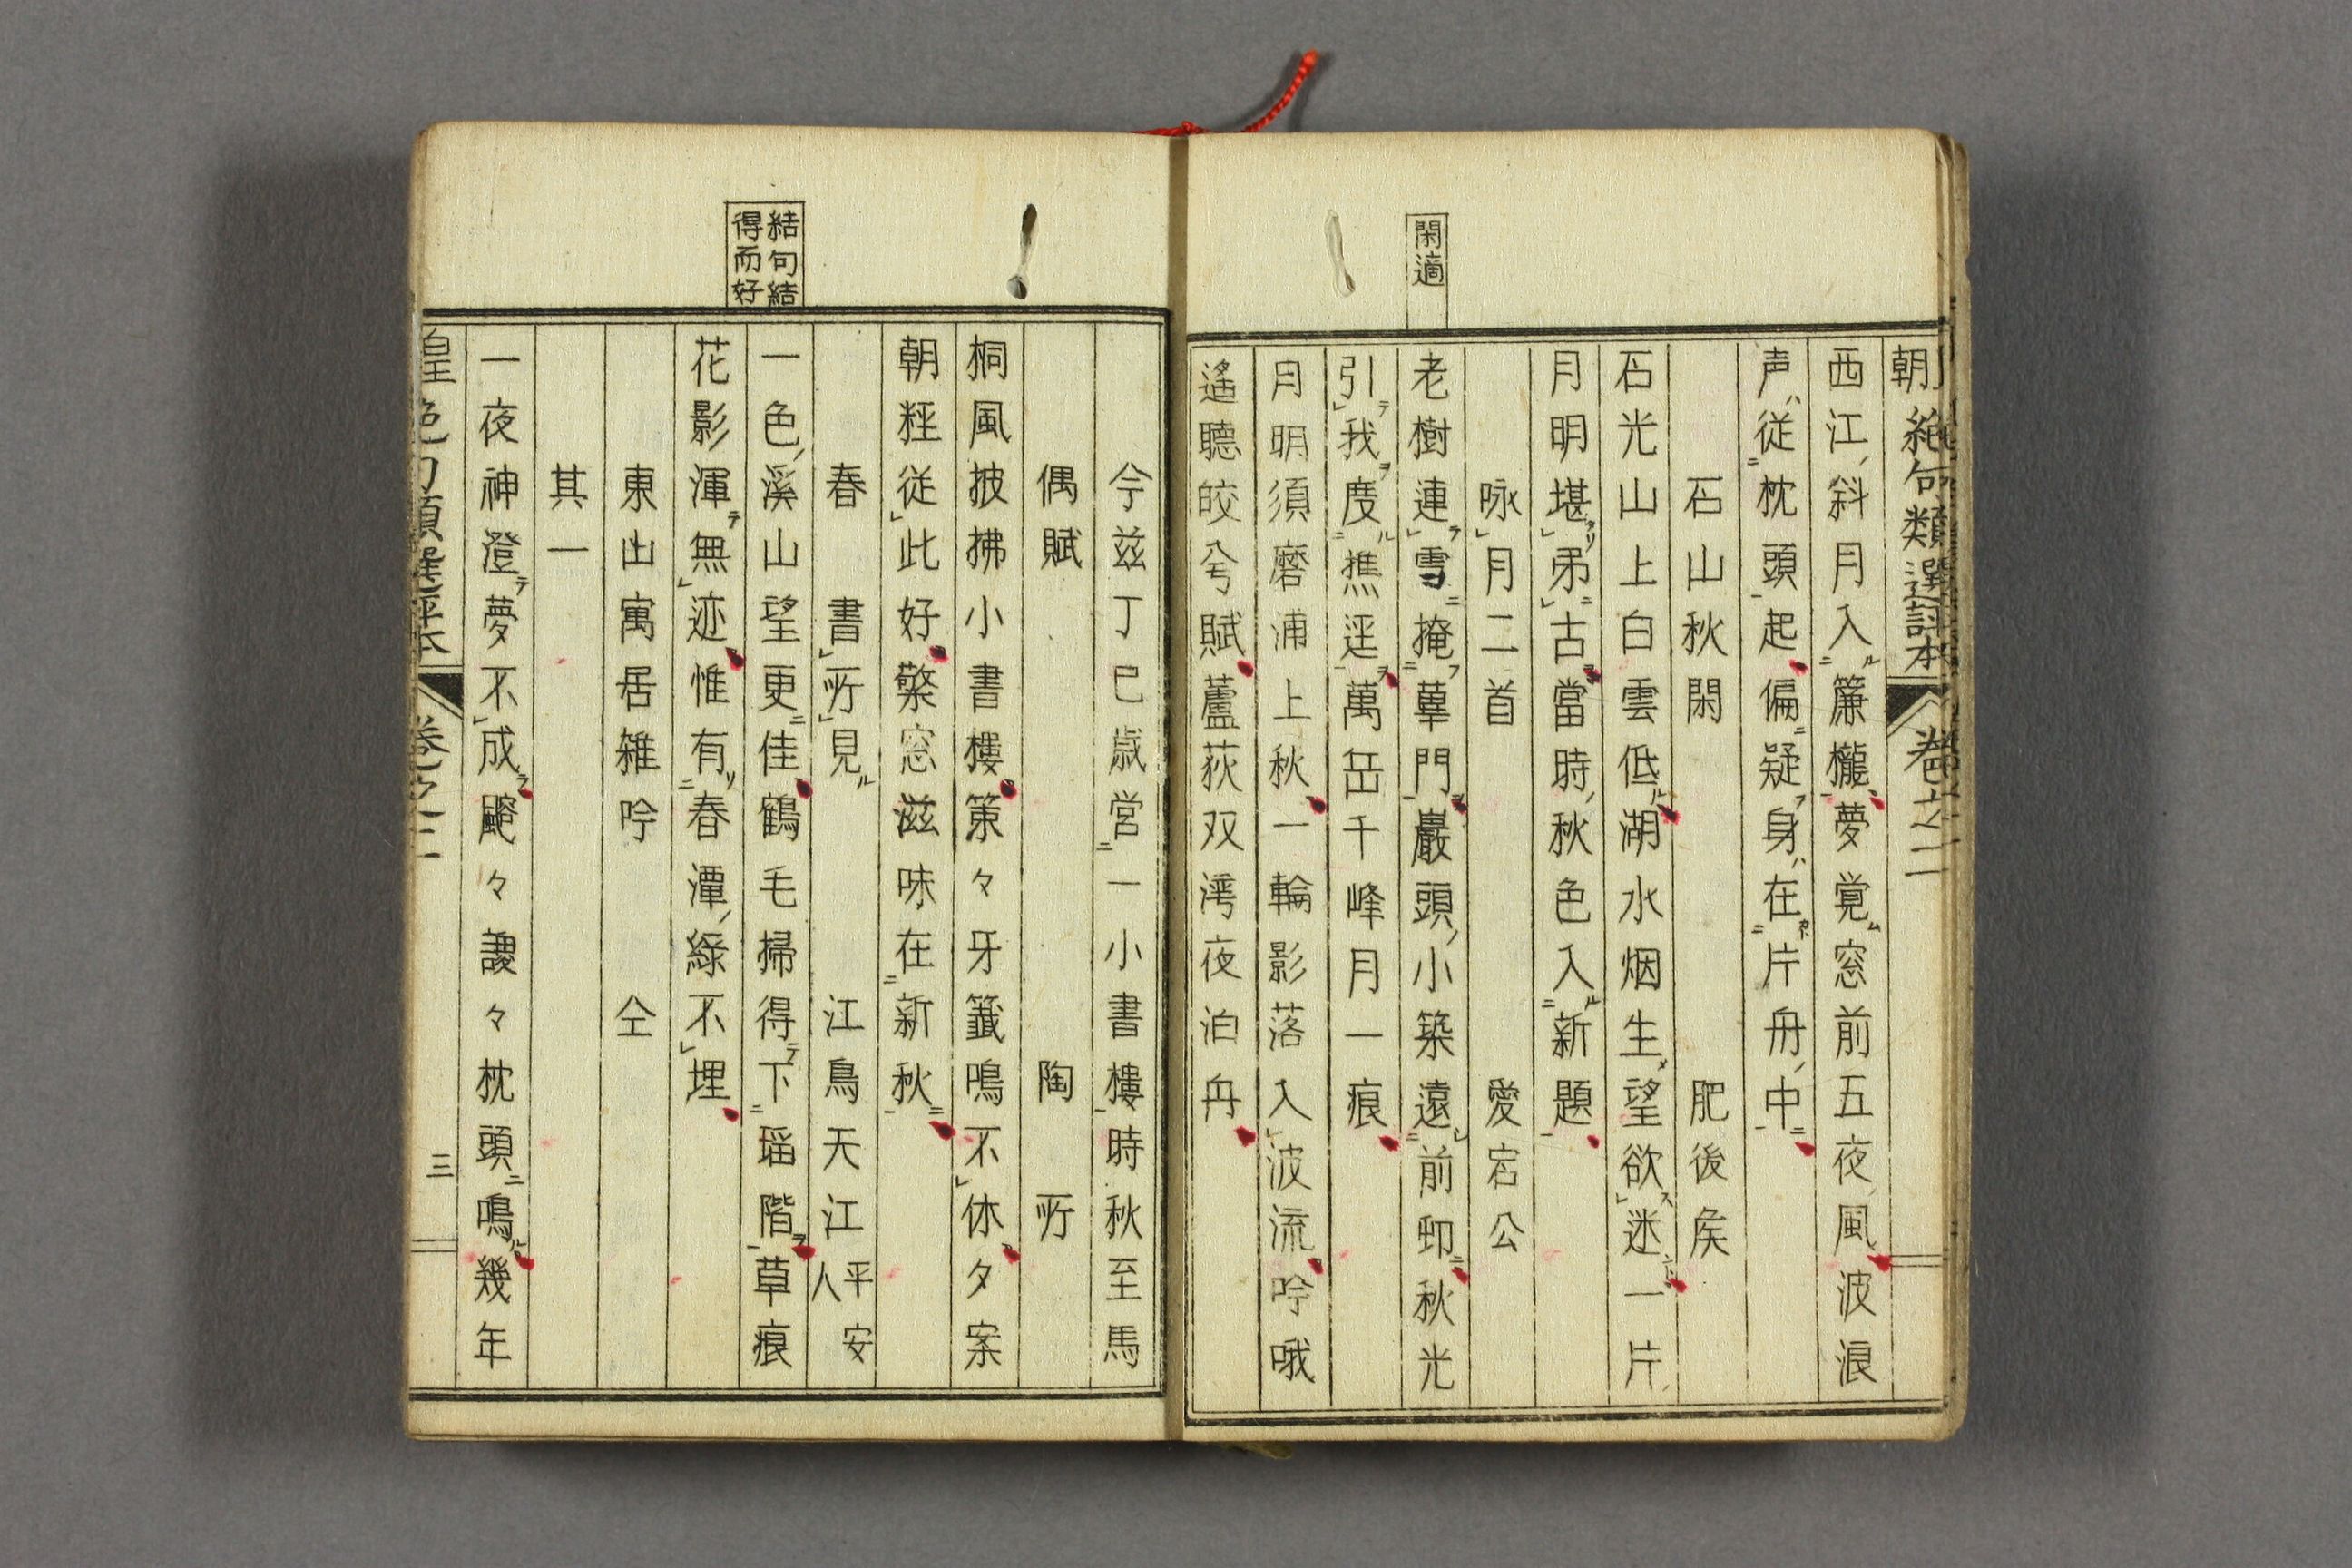 朝絶句類選評本 巻之二
西江斜月入簾櫳夢覚窓前五夜風波浪
声従枕頭起偏疑身在片舟中
石山秋閑 肥後矦
石光山上白雲低湖水烟生望欲迷一片
月明堪弔古當時秋色入新題
咏月二首 愛宕公
閑適
老樹連雪掩蓽門巖頭小築遠前邨秋光
引我度樵逕萬岳千峰月一痕
月明須磨浦上秋一輪影落入波流吟哦
遙聽皎兮賦蘆荻双湾夜泊舟
今茲丁巳歳営一小書樓時秋至馬
偶賦 陶所
桐風披拂小書樓策々牙籤鳴不休夕案
朝粧従此好檠窓滋味在新秋
春書所見 江鳥天江 平安人
結句結
得而好
一色溪山望更佳鶴毛掃得下瑶階草痕
花影渾無迹惟有春潭緑不埋
東山寓居雑吟 仝
其一
一夜神澄夢不成颼々謖々枕頭鳴幾年
皇 巻之二 三